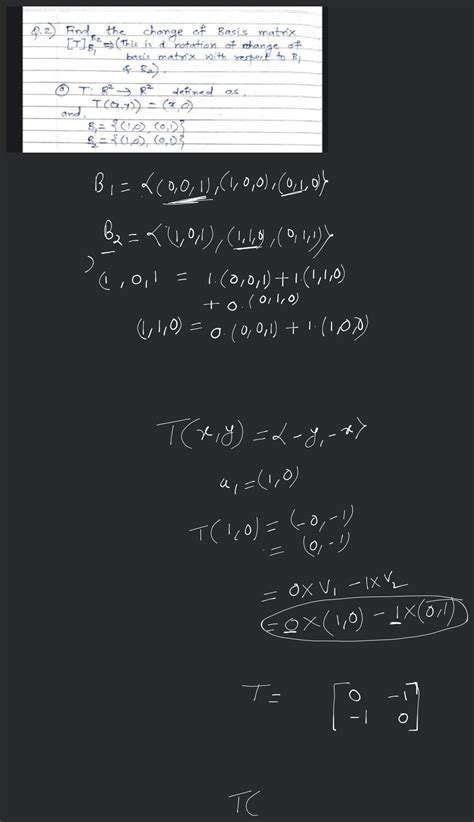 Q.2) Find the change of Basis matrix
[T]B1B2 ⇒ (This is d notation of change of
basis matrix with respect to B1
& B2).
ⓐ T: R² → R² defined as.
T((x,y)) = (x,0)
and,
B1 = {(1,0), (0,1)}
B2 = {(1,0), (0,1)}
B1 = <(0,0,1), (1,0,0), (0,1,0)>
B2 = <(1,0,1), (1,1,0), (0,1,1)>
(1,0,1 = 1.(0,0,1) + 1.(1,1,0)
+ 0.(0,1,0)
(1,1,0) = 0.(0,0,1) + 1.(1,0,0)
T(x,y) = <-y,-x>
a1 = (1,0)
T(1,0) = (-0,-1)
= (0,-1)
= 0×V1 -1×V2
= 0×(1,0) - 1×(0,1)
T = [0 -1
-1 0]
T(